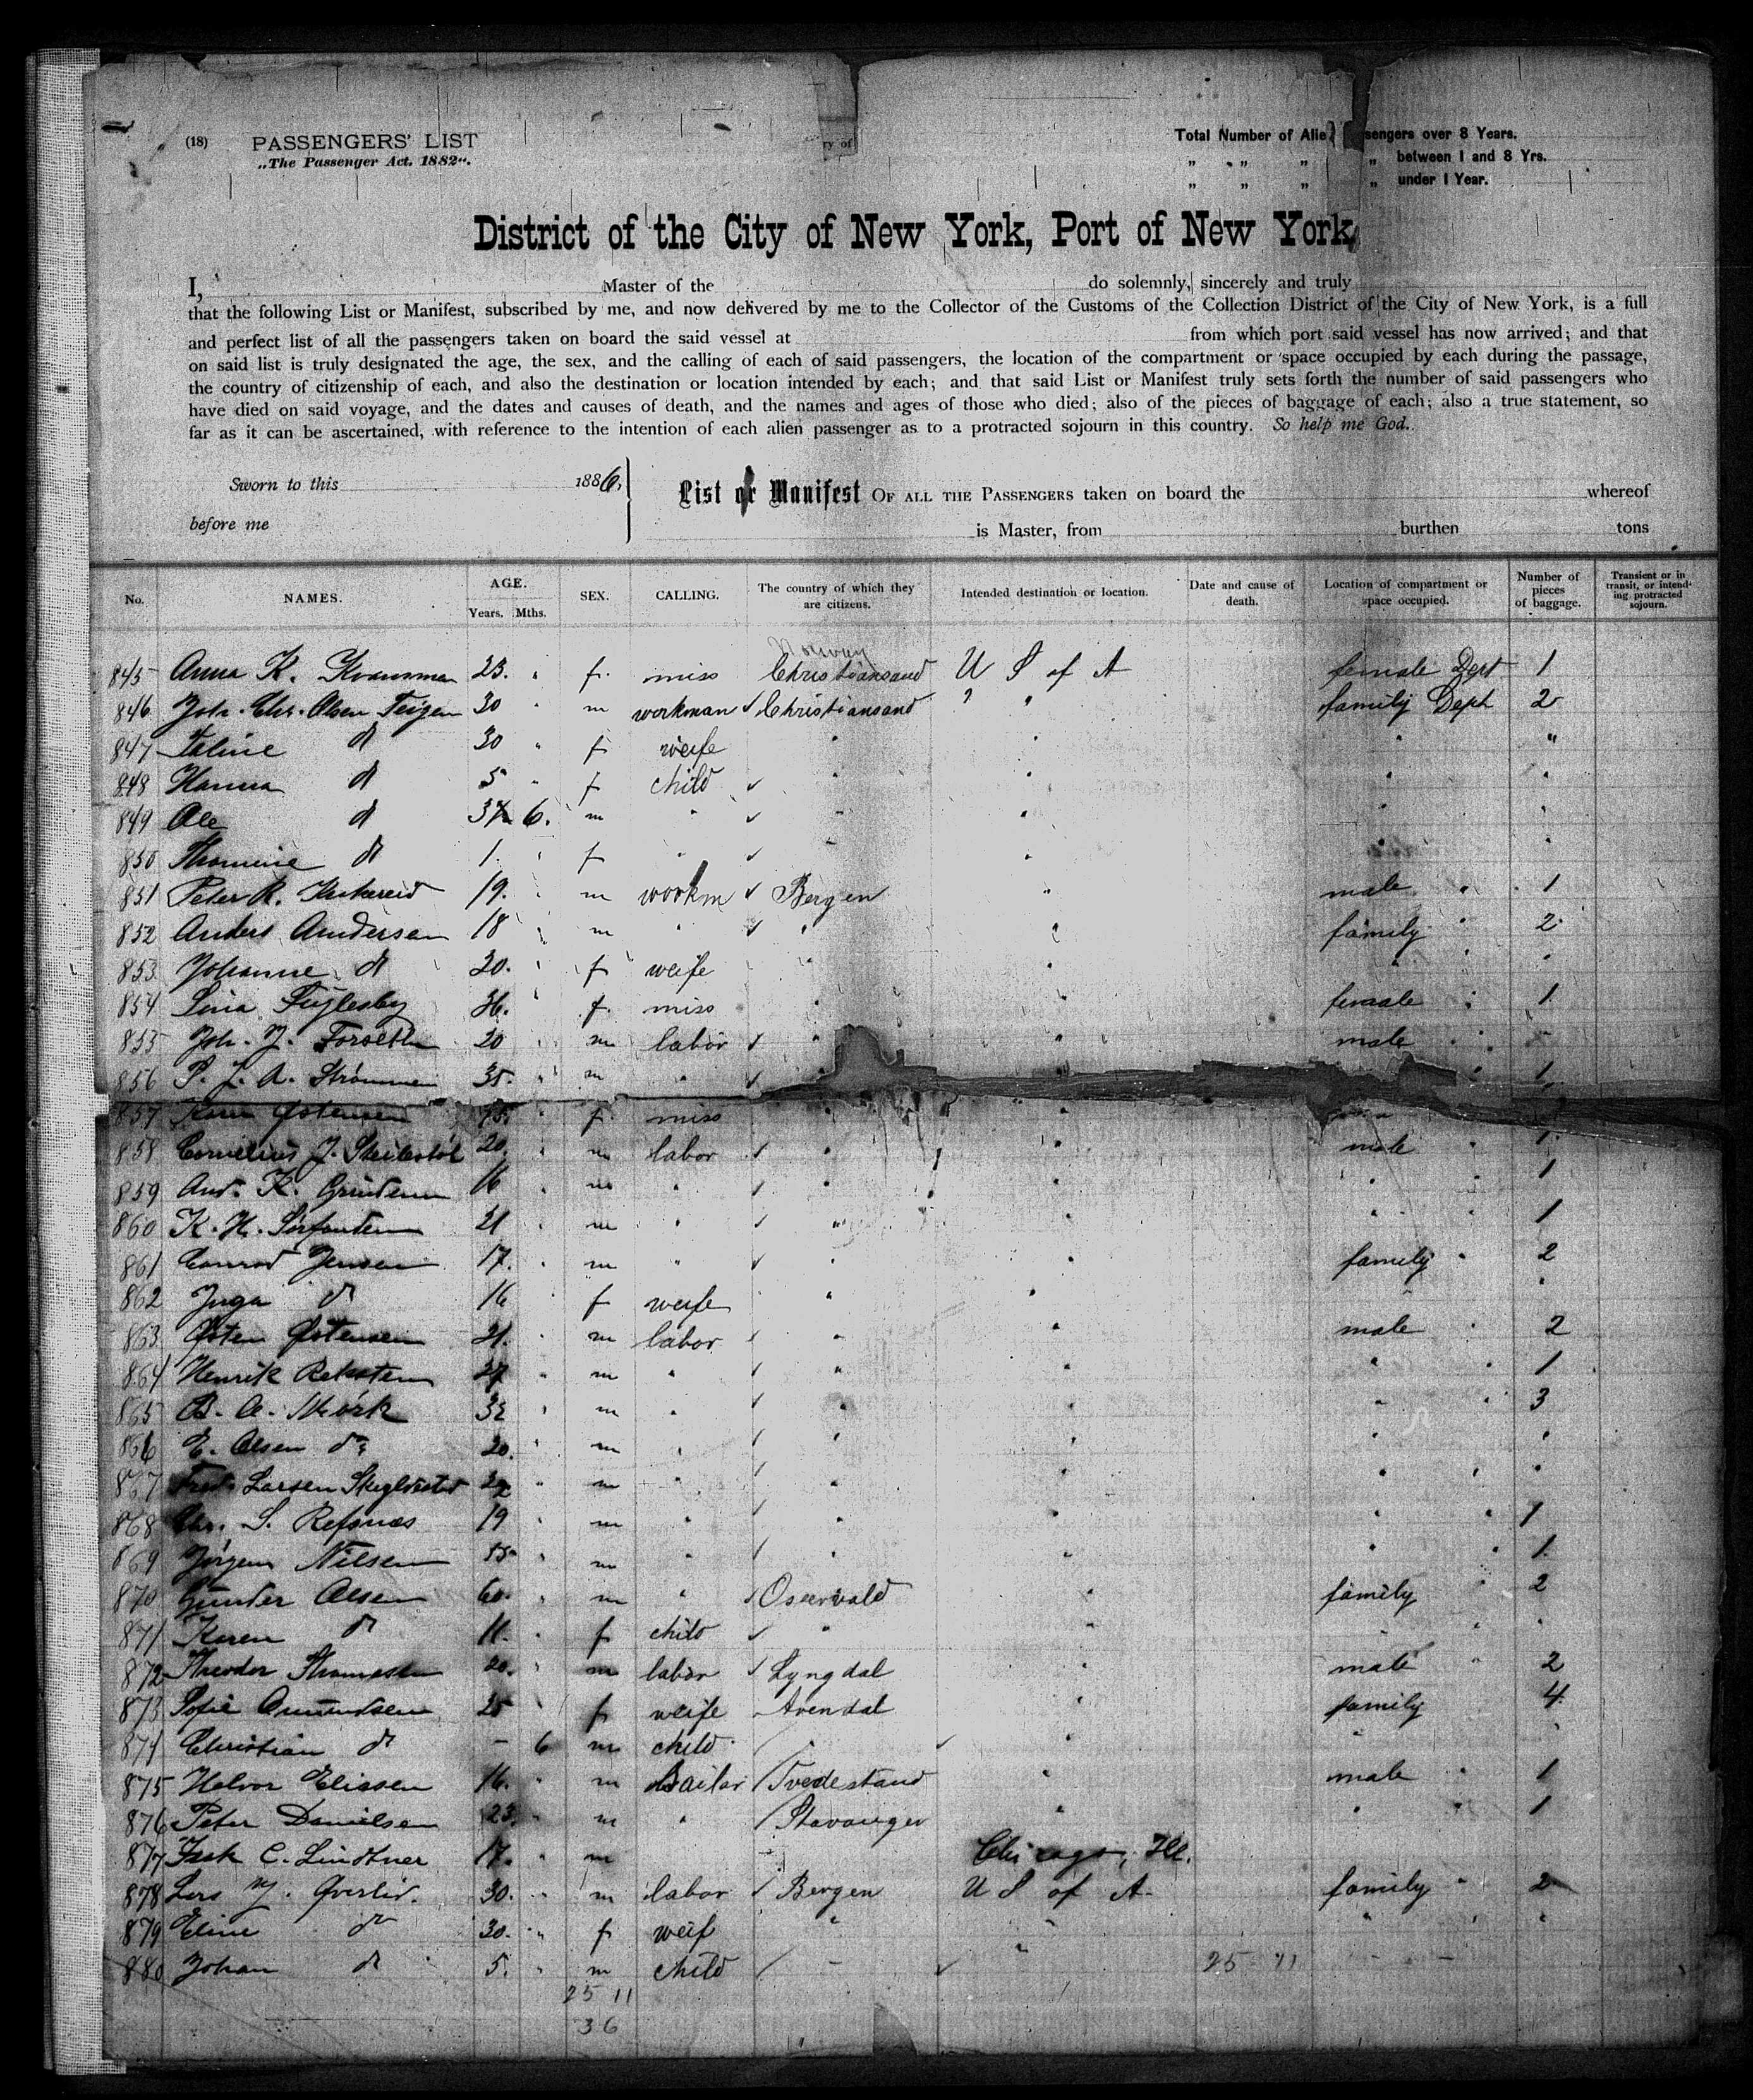 (18) PASSENGERS' LIST
„The Passenger Act, 1882".
ry of
Total Number of Alie sengers over 8 Years.
„ „ „ „ between 1 and 8 Yrs.
„ „ „ „ under 1 Year.
District of the City of New York, Port of New York,
I, Master of the do solemnly, sincerely and truly
that the following List or Manifest, subscribed by me, and now delivered by me to the Collector of the Customs of the Collection District of the City of New York, is a full
and perfect list of all the passengers taken on board the said vessel at from which port said vessel has now arrived; and that
on said list is truly designated the age, the sex, and the calling of each of said passengers, the location of the compartment or space occupied by each during the passage,
the country of citizenship of each, and also the destination or location intended by each; and that said List or Manifest truly sets forth the number of said passengers who
have died on said voyage, and the dates and causes of death, and the names and ages of those who died; also of the pieces of baggage of each; also a true statement, so
far as it can be ascertained, with reference to the intention of each alien passenger as to a protracted sojourn in this country. So help me God.
Sworn to this 1886,
before me
List or Manifest OF ALL THE PASSENGERS taken on board the whereof
is Master, from burthen tons
No. NAMES. AGE. Years. Mths. SEX. CALLING. The country of which they are citizens. Intended destination or location. Date and cause of death. Location of compartment or space occupied. Number of pieces of baggage. Transient or in transit, or intending protracted sojourn.
Norway
845 Anna K. 23. " f. miss Christiansand U S of A female Dept 1
846 Joh. Chr. Olsen Teigen 30 " m workman Christiansand " " family Deph 2
847 Taline d 30 " f weife " " " "
848 Hanna d 5 " f child " " " "
849 Ole d 3 6. m " " " " "
850 Thomine d 1. " f " " " " "
851 Peter R. 19. " m workm Bergen " male " 1
852 Anders Andersen 18 " m " " " family " 2
853 Johanne d 20. " f weife " " " "
854 Lina Fuglesby 36. " f. miss " " female " 1
855 Joh. J. Forseth 20 " m labor " " male " -
856 P. J. A. Strömmen 35. " m " " " " 1
857 Østensen " f. miss " "
858 Cornelius J. 20. " m labor " " male " 1
859 And. K. 16 " m " " " " 1
860 K. H. 21 " m " " " " " 1
861 Conrad Jensen 17. " m " " " family " 2
862 Inga d 16 " f weife " " "
863 Østen Østensen 21. " m labor " " male " 2
864 Henrik " m " " " " " 1
865 B. A. Mörk 32 " m " " " " " 3
866 E. Olsen do 20. " m " " " " "
867 Fred. Larsen " m " " " " "
868 Chr. S. Refsnæs 19 " m " " " " " 1
869 Jörgen Nilsen " m " " " " " 1.
870 Gunder Olsen 60. " m " Oseervald " family " 2
871 Karen d 11. " f child " " "
872 Theodor Thomassen 20. " m labor Lyngdal male " 2
873 Sofie Amundsen 25 f weife Arendal " family 4
874 Christian d - 6 m child " " "
875 Halvor Eliassen 16. " m Sailor Tvedestand " male " 1
876 Peter Danielsen 23. " m " Stavanger " " " 1
877 Isak C. Lindtner 17. " m Chicago, Ill.
878 Lars M. Qverlid. 30. " m labor Bergen U S of A. family " 2
879 Eline d 30. " f weif " " " " "
880 Johan d 5. " m child - " 25 11 - -
25 11
36